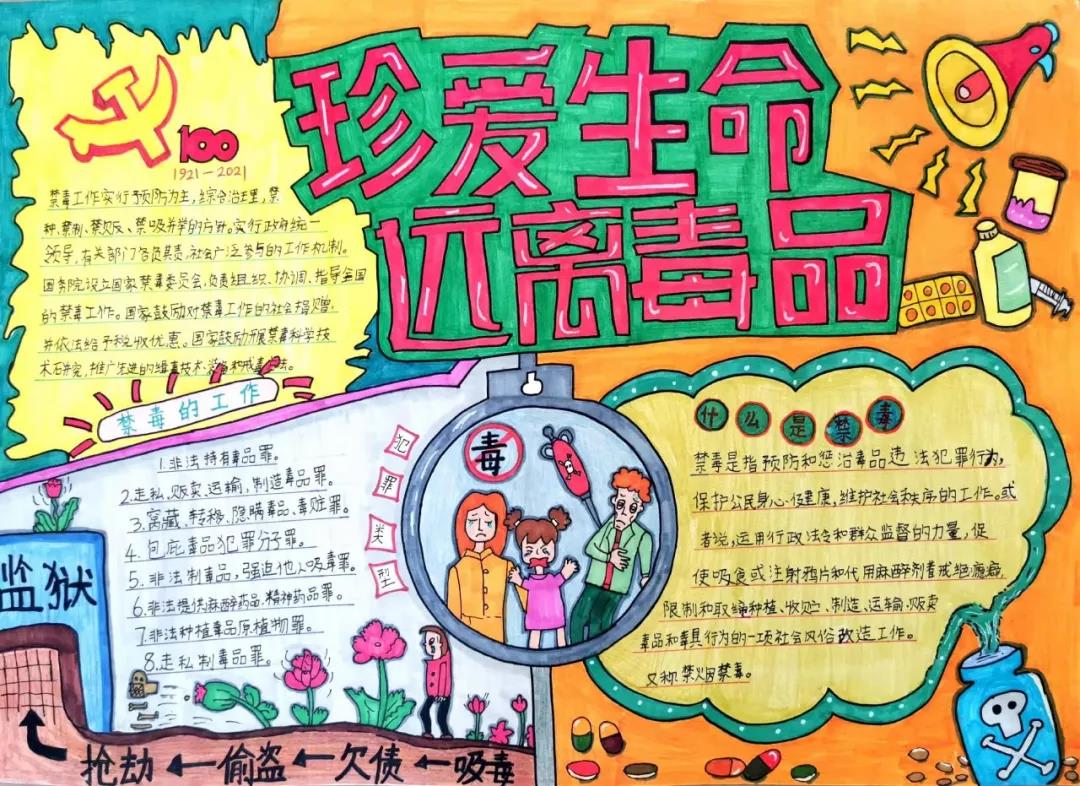 珍爱生命
远离毒品
100
1921-2021
禁毒工作实行预防为主，综合治理，禁
种、禁制、禁贩、禁吸并举的方针。实行政府统一
领导，有关部门各负其责，社会广泛参与的工作机制。
国务院设立国家禁毒委员会，负责组织、协调、指导全国
的禁毒工作。国家鼓励对禁毒工作的社会捐赠，
并依法给予税收优惠。国家鼓励开展禁毒科学技
术研究，推广先进的缉毒技术、装备和戒毒方法。
禁毒的工作
犯罪类型
1.非法持有毒品罪。
2.走私、贩卖、运输，制造毒品罪。
3.窝藏、转移、隐瞒毒品、毒赃罪。
4.包庇毒品犯罪分子罪。
5.非法制毒品，强迫他人吸毒罪。
6.非法提供麻醉药品、精神药品罪。
7.非法种植毒品原植物罪。
8.走私制毒品罪。
毒
什么是禁毒
禁毒是指预防和惩治毒品违法犯罪行为，
保护公民身心健康，维护社会秩序的工作。或
者说，运用行政法令和群众监督的力量，促
使吸食或注射鸦片和代用麻醉剂者戒绝瘾癖，
限制和取缔种植、收贮、制造、运输、贩卖
毒品和毒具行为的一项社会风俗改造工作。
又称禁烟禁毒。
监狱
抢劫←偷盗←欠债←吸毒